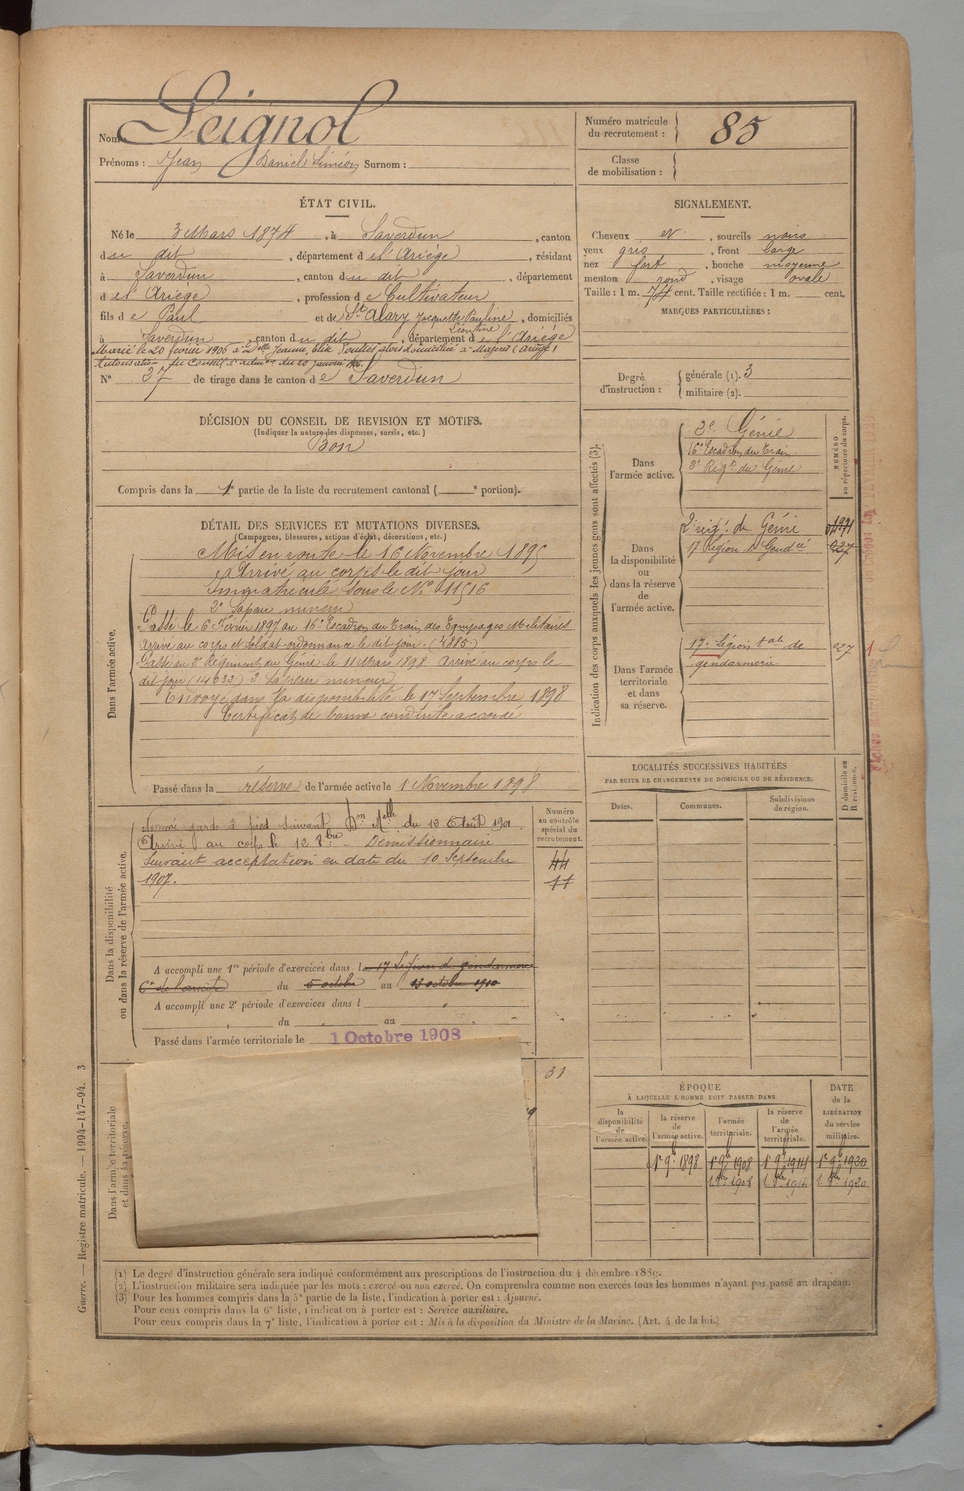 Nom : Seignol
Prénoms : Jean Daniel Siméon Surnom :
Numéro matricule du recrutement : 85
Classe de mobilisation :
ÉTAT CIVIL.
Né le 3 Mars 1874, à Saverdun, canton
du dit, département de l'Ariège, résidant
à Saverdun, canton du dit, département
de l'Ariège, profession de Cultivateur
fils de Paul et de Alary Jacquette Pauline, domiciliés
Léontine
à Saverdun, canton du dit, département de l'Ariège
Marié le 20 février 1906 à Delle Jeanne, domiciliée à
Autorisation du Conseil d'admon du 20 janvier 1906.
N° 37 de tirage dans le canton de Saverdun
SIGNALEMENT.
Cheveux et, sourcils noirs
yeux gris, front large
nez fort, bouche moyenne
menton rond, visage ovale
Taille : 1 m. cent. Taille rectifiée : 1 m. cent.
MARQUES PARTICULIÈRES :
Degré d'instruction : générale (1). 3
militaire (2).
DÉCISION DU CONSEIL DE REVISION ET MOTIFS.
(Indiquer la nature des dispenses, sursis, etc.)
Bon
Compris dans la 1e partie de la liste du recrutement cantonal ( e portion).
DÉTAIL DES SERVICES ET MUTATIONS DIVERSES.
(Campagnes, blessures, actions d'éclat, décorations, etc.)
Dans l'armée active.
Mis en route le 16 Novembre 1895
Arrivé au corps le dit jour
Immatriculé sous le N° 11516
2e Sapeur mineur
Passé le 6 Février 1897 au 16e Escadron du Train des Equipages Militaires
Arrivé au corps et Soldat ordonnance le dit jour. (4885)
Passé au 3e Régiment du Génie le 11 Mai 1898. Arrivé au corps le
dit jour (14632) 2e Sapeur mineur
Envoyé dans la disponibilité le 17 Septembre 1898
Certificat de bonne conduite accordé
Passé dans la réserve de l'armée active le 1 Novembre 1898
Indication des corps auxquels les jeunes gens sont affectés (3).
NUMÉRO au répertoire du corps.
Dans l'armée active.
3e Génie
16e Escadron du Train
3e Régt du Génie
Dans la disponibilité ou dans la réserve de l'armée active.
2e régt du Génie
17 Légion de Gendrie 927
Dans l'armée territoriale et dans sa réserve.
17e Légion de
gendarmerie
LOCALITÉS SUCCESSIVES HABITÉES
PAR SUITE DE CHANGEMENTS DE DOMICILE OU DE RÉSIDENCE.
Dates. Communes. Subdivisions de région. D domicile ou R résidence.
Dans la disponibilité ou dans la réserve de l'armée active.
Numéro au contrôle spécial du recrutement.
44
11
Nommé garde à pied suivant Don Mlle du 12 Août 1901.
Arrivé au corps le 12 8bre. Démissionnaire
suivant acceptation en date du 10 Septembre
1907.
A accompli une 1re période d'exercices dans la 17 Légion de gendarmerie
du 5 octobre au 13 octobre 1910
A accompli une 2e période d'exercices dans l
du au
Passé dans l'armée territoriale le 1 Octobre 1908
Dans l'armée territoriale et dans la réserve.
31
ÉPOQUE
À LAQUELLE L'HOMME DOIT PASSER DANS
DATE de la LIBÉRATION du service militaire.
la disponibilité de l'armée active.
la réserve de l'armée active.
l'armée territoriale.
la réserve de l'armée territoriale.
1er 9bre 1898 1er 9bre 1908 1er 9bre 1914 1er 9bre 1920
1 8bre 1908 1 8bre 1914 1 8bre 1920
(1) Le degré d'instruction générale sera indiqué conformément aux prescriptions de l'instruction du 4 décembre 1889.
(2) L'instruction militaire sera indiquée par les mots : exercé ou non exercé. On comprendra comme non exercés tous les hommes n'ayant pas passé au drapeau.
(3) Pour les hommes compris dans la 5e partie de la liste, l'indication à porter est : Ajourné.
Pour ceux compris dans la 6e liste, l'indication à porter est : Service auxiliaire.
Pour ceux compris dans la 7e liste, l'indication à porter est : Mis à la disposition du Ministre de la Marine. (Art. 4 de la loi.)
Guerre. — Registre matricule. — 1994-147-94. 3